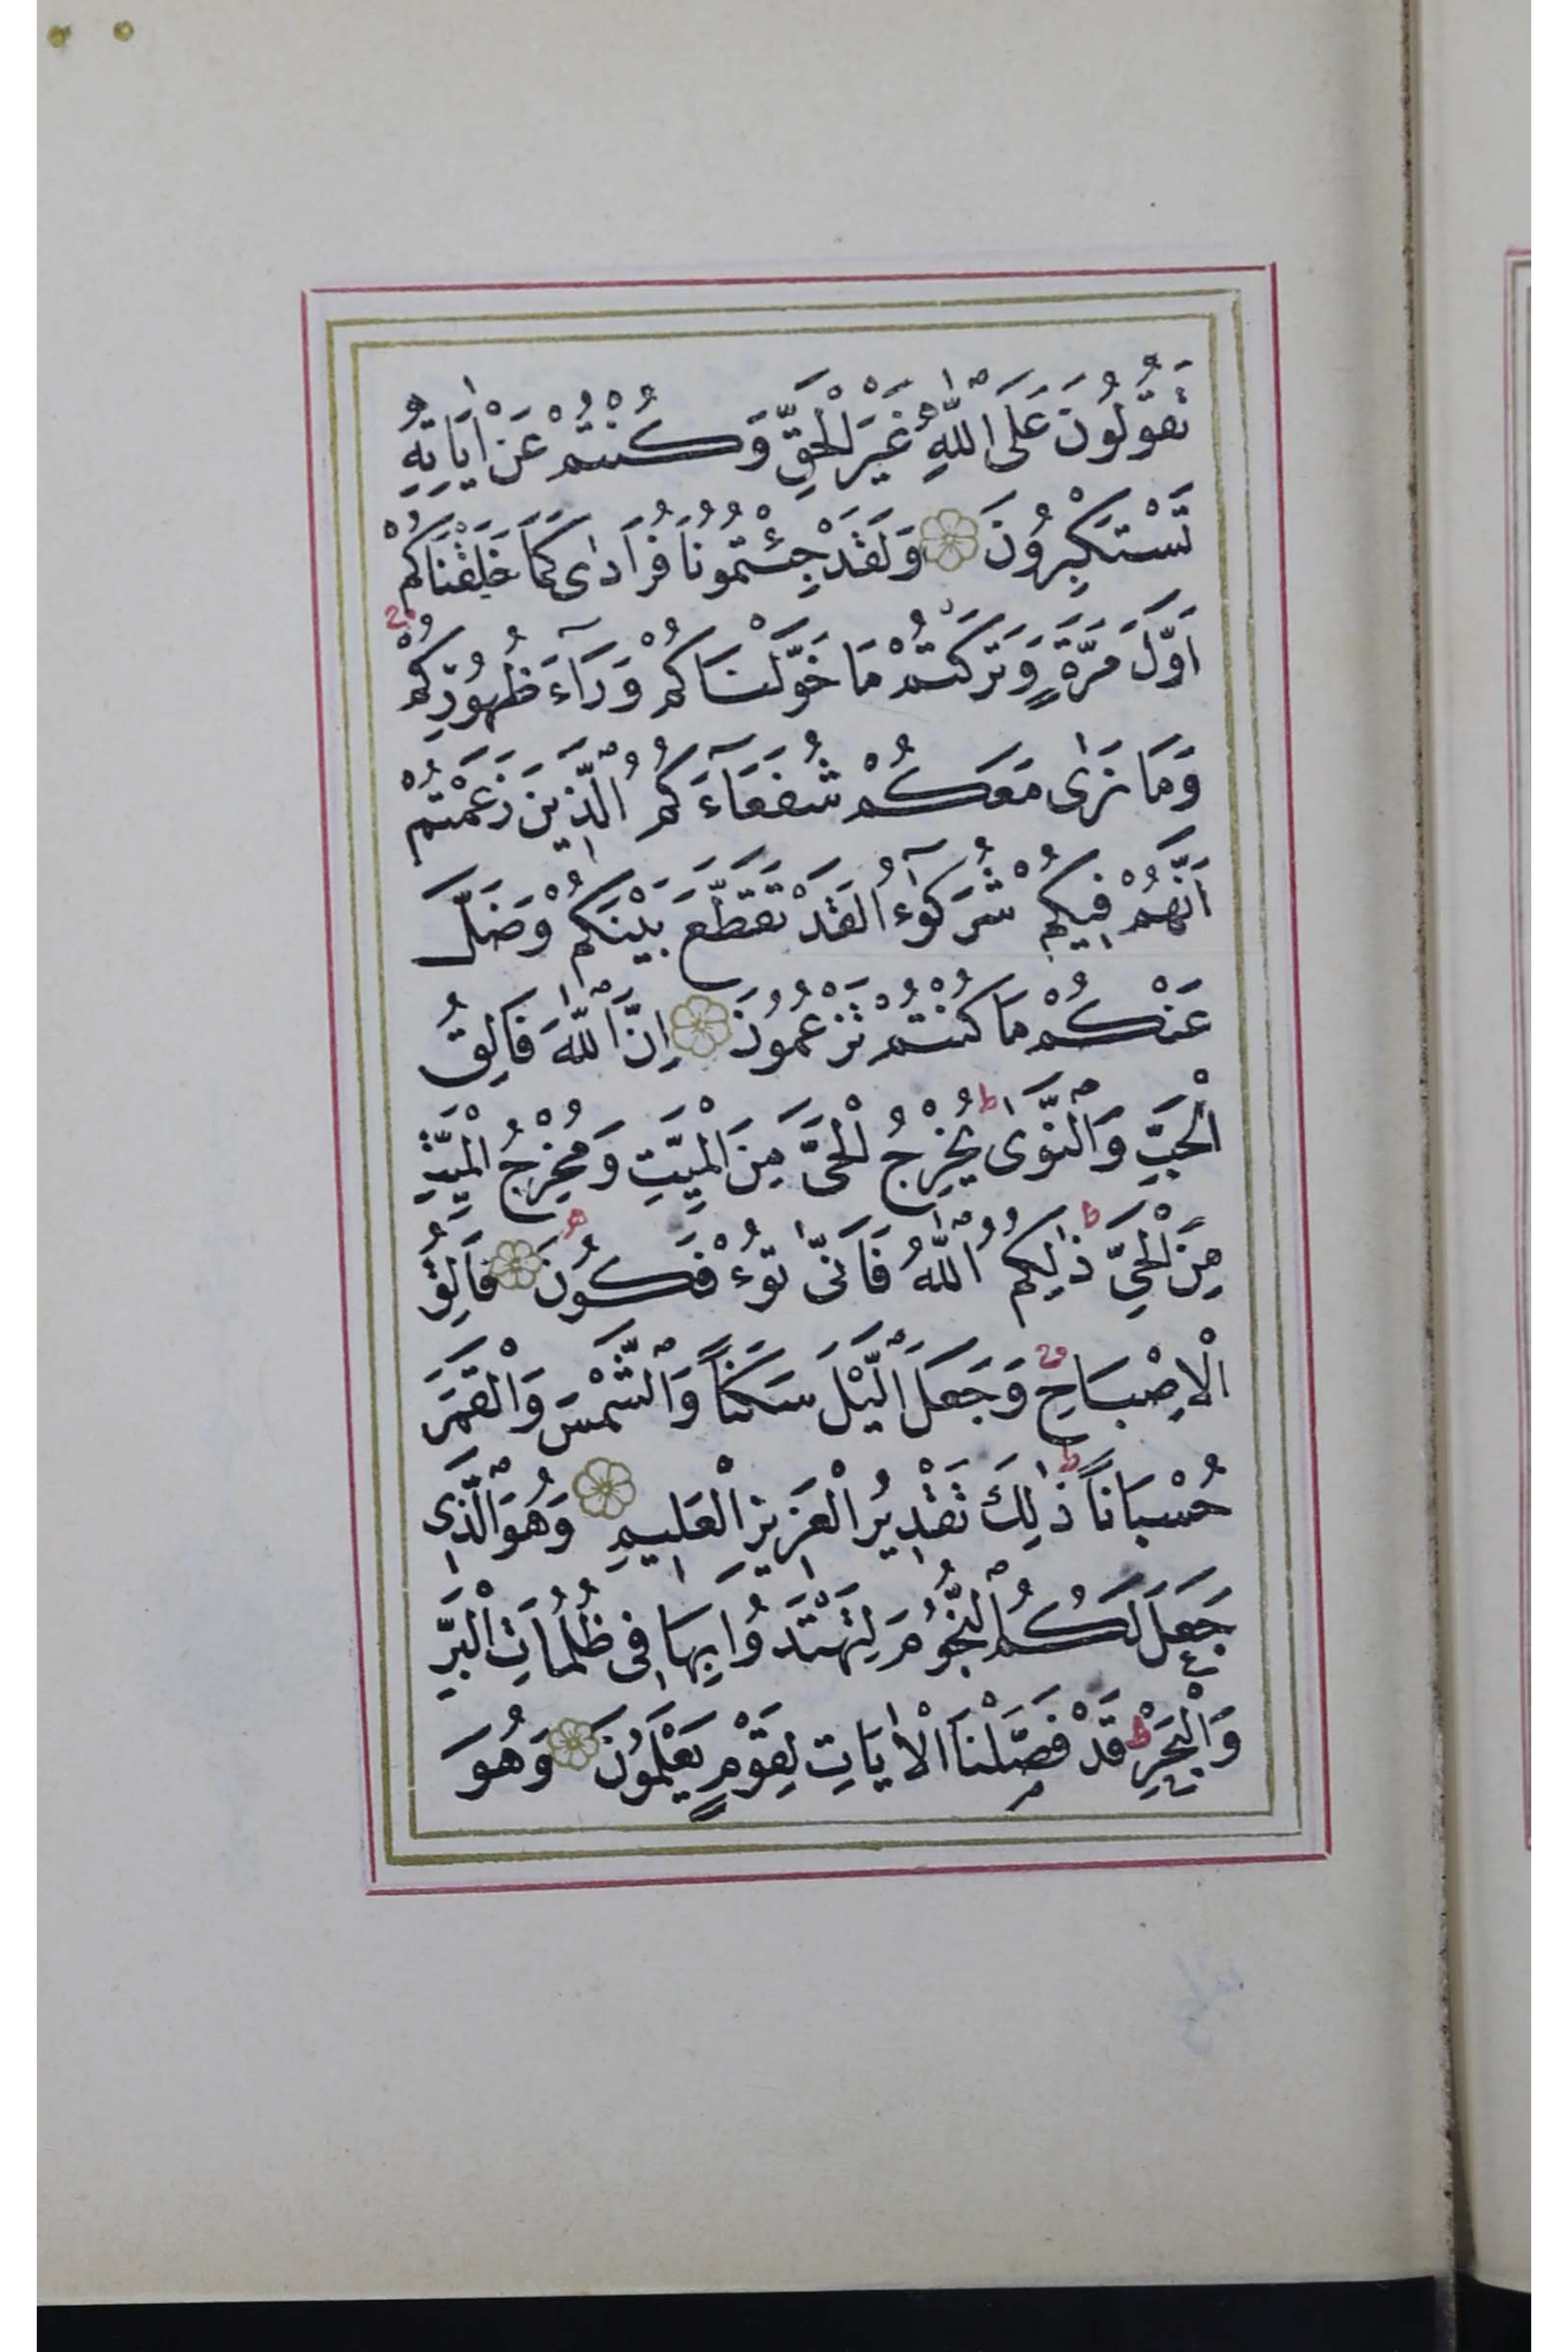 تَقُولُونَ عَلَى اللّٰهِ غَيْرَ الْحَقِّ وَكُنْتُمْ عَنْ اٰيَاتِهِ
تَسْتَكْبِرُونَ وَلَقَدْ جِئْتُمُونَا فُرَادٰى كَمَا خَلَقْنَاكُمْ
اَوَّلَ مَرَّةٍ وَتَرَكْتُمْ مَا خَوَّلْنَاكُمْ وَرَآءَ ظُهُورِكُمْ
وَمَا نَرٰى مَعَكُمْ شُفَعَآءَكُمُ الَّذِينَ زَعَمْتُمْ
اَنَّهُمْ فِيكُمْ شُرَكٰٓؤُا لَقَدْ تَقَطَّعَ بَيْنَكُمْ وَضَلَّ
عَنْكُمْ مَا كُنْتُمْ تَزْعُمُونَ اِنَّ اللّٰهَ فَالِقُ
الْحَبِّ وَالنَّوٰى ط يُخْرِجُ الْحَىَّ مِنَ الْمَيِّتِ وَمُخْرِجُ الْمَيِّتِ
مِنَ الْحَىِّ ط ذٰلِكُمُ اللّٰهُ فَاَنّٰى تُؤْفَكُونَ فَالِقُ
الْاِصْبَاحِ وَجَعَلَ الَّيْلَ سَكَنًا وَالشَّمْسَ وَالْقَمَرَ
حُسْبَانًا ط ذٰلِكَ تَقْدِيرُ الْعَزِيزِ الْعَلِيمِ وَهُوَ الَّذِى
جَعَلَ لَكُمُ النُّجُومَ لِتَهْتَدُوا بِهَا فِى ظُلُمَاتِ الْبَرِّ
وَالْبَحْرِ ط قَدْ فَصَّلْنَا الْاٰيَاتِ لِقَوْمٍ يَعْلَمُونَ وَهُوَ